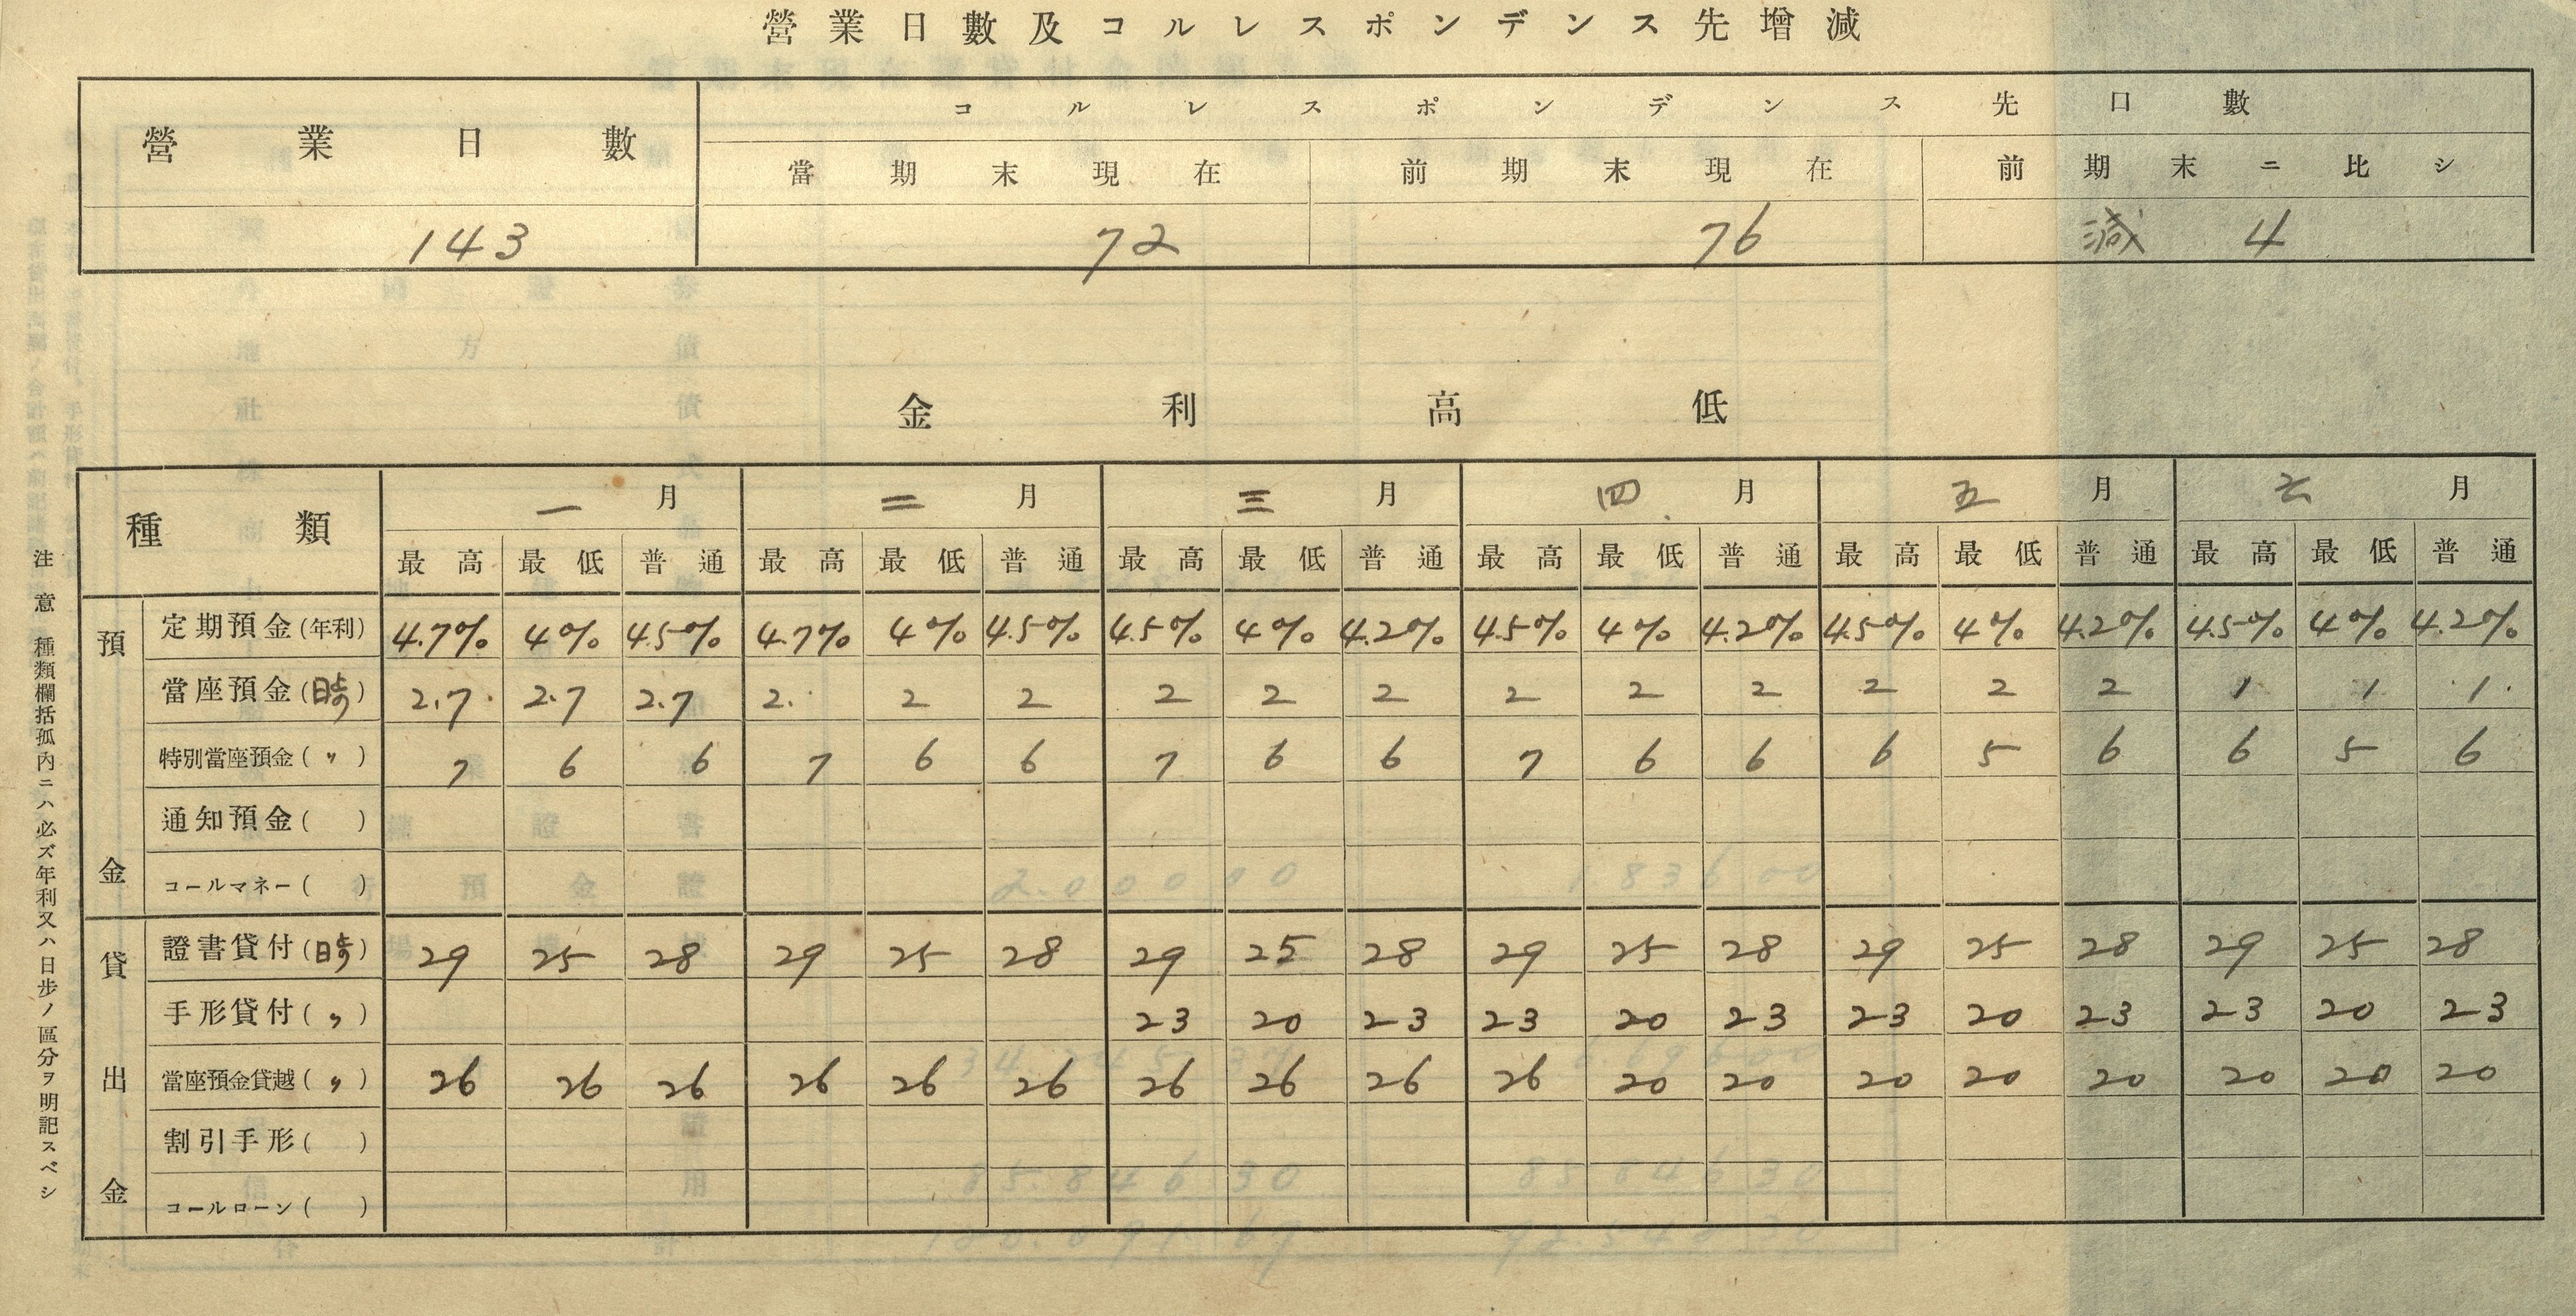 營業日數及コルレスポンデンス先增減
營業日數 コルレスポンデンス先口數
當期末現在 前期末現在 前期末ニ比シ
143 72 76 減 4
金利高低
種類 一月 二月 三月 四月 五月 六月
最高 最低 普通 最高 最低 普通 最高 最低 普通 最高 最低 普通 最高 最低 普通 最高 最低 普通
預金
定期預金(年利) 4.7% 4% 4.5% 4.7% 4% 4.5% 4.5% 4% 4.2% 4.5% 4% 4.2% 4.5% 4% 4.2% 4.5% 4% 4.2%
當座預金(日歩) 2.7 2.7 2.7 2. 2 2 2 2 2 2 2 2 2 2 2 1 1 1
特別當座預金(〃) 7 6 6 7 6 6 7 6 6 7 6 6 6 5 6 6 5 6
通知預金( )
コールマネー( )
貸出金
證書貸付(日歩) 29 25 28 29 25 28 29 25 28 29 25 28 29 25 28 29 25 28
手形貸付(〃) 23 20 23 23 20 23 23 20 23 23 20 23
當座預金貸越(〃) 26 26 26 26 26 26 26 26 26 26 20 20 20 20 20 20 20 20
割引手形( )
コールローン( )
注意 種類欄括孤內ニハ必ズ年利又ハ日步ノ區分ヲ明記スベシ